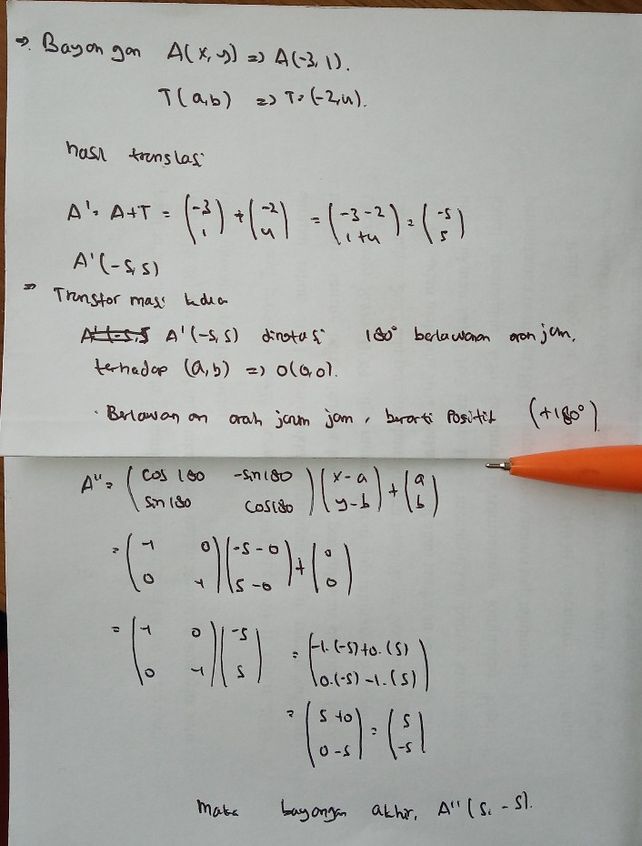 ⇒ Bayangan A(x,y) => A(-3,1).
T(a,b) => T=(-2,4).
hasil translasi
A' = A+T = (-3 1) + (-2 4) = (-3-2 1+4) = (-5 5)
A'(-5,5)
⇒ Transformasi kedua
A'(-5,5) dirotasi 180° berlawanan arah jam,
terhadap (a,b) => O(0,0).
· Berlawanan arah jarum jam, berarti Positif (+180°)
A'' = (cos 180 -sin 180 sin 180 cos 180)(x-a y-b) + (a b)
= (-1 0 0 -1)(-5-0 5-0) + (0 0)
= (-1 0 0 -1)(-5 5) = (-1.(-5)+0.(5) 0.(-5)-1.(5))
= (5+0 0-5) = (5 -5)
Maka bayangan akhir, A''(5, -5).